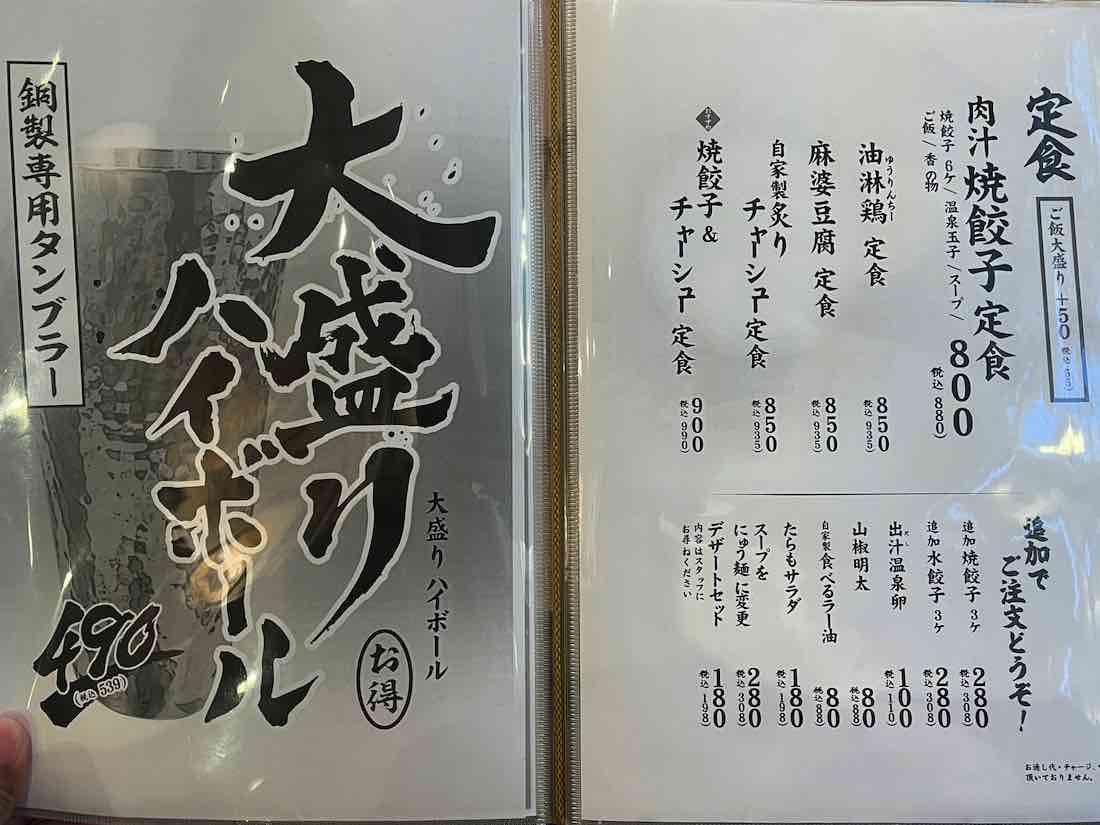 大盛り
ハイボール
銅製専用タンブラー
大盛りハイボール
お得
490
(税込 539)
定食
ご飯大盛り +50 (税込 55)
肉汁焼餃子定食
焼餃子 6ケ/温泉玉子/スープ/
ご飯/香の物
800
(税込 880)
油淋鶏 定食
ゆうりんちー
850
(税込 935)
麻婆豆腐 定食
850
(税込 935)
自家製炙り
チャーシュー定食
850
(税込 935)
焼餃子&
チャーシュー定食
900
(税込 990)
追加で
ご注文どうぞ!
追加 焼餃子 3ケ
280
(税込 308)
追加 水餃子 3ケ
280
(税込 308)
出汁温泉卵
だし
100
(税込 110)
山椒明太
80
(税込 88)
自家製食べるラー油
80
(税込 88)
たらもサラダ
180
(税込 198)
スープを
にゅう麺に変更
280
(税込 308)
デザートセット
内容はスタッフに
お尋ねください
180
(税込 198)
お通し代・チャージ、
頂いておりません。